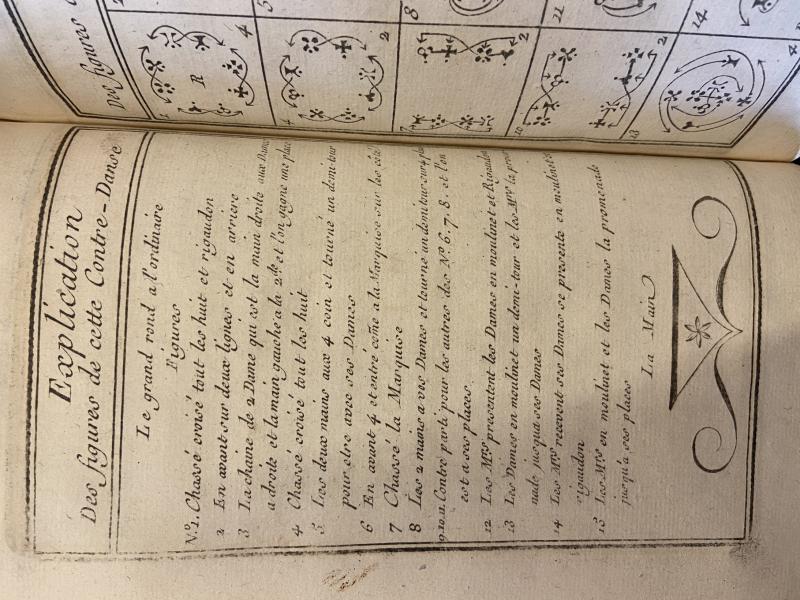 Explication
Des figures de cette Contre-Danse
Le grand rond a l'ordinaire
Figures
No. 1. Chassé croisé tout les huit et rigaudon
2 En avant sur deux lignes et en arriere
3 La chaine de 2 Dame qui est la main droite aux Dames
a droite et la main gauche a la 2de et l'on gagne une place
4 Chassé croisé tout les huit
5 Les deux mains aux 4 coin et tourné un demi tour
pour etre avec ses Dames
6 En avant 4 et entré come a la Marquise sur les côté
7 Chassé la Marquise
8 Les 2 mains a vos Dames et tourné un demi tour
9.10.11. Contre parti pour les autres des No. 6. 7. 8. et l'on
est a ses places
12 Les Mrs presentent les Dames en moulinet et Rigaudon
13 Les Dames en moulinet un demi-tour et les Mrs la prome
nade jusqu'a ses Dames
14 Les Mrs recevent ses Dames se presente en moulinet
rigaudon
15 Les Mrs en moulinet et les Dames la promenade
jusqu'à ses places
La Main
Des figures
1
R
4
4
2
5
7
2
8
10
2
11
13
4
14